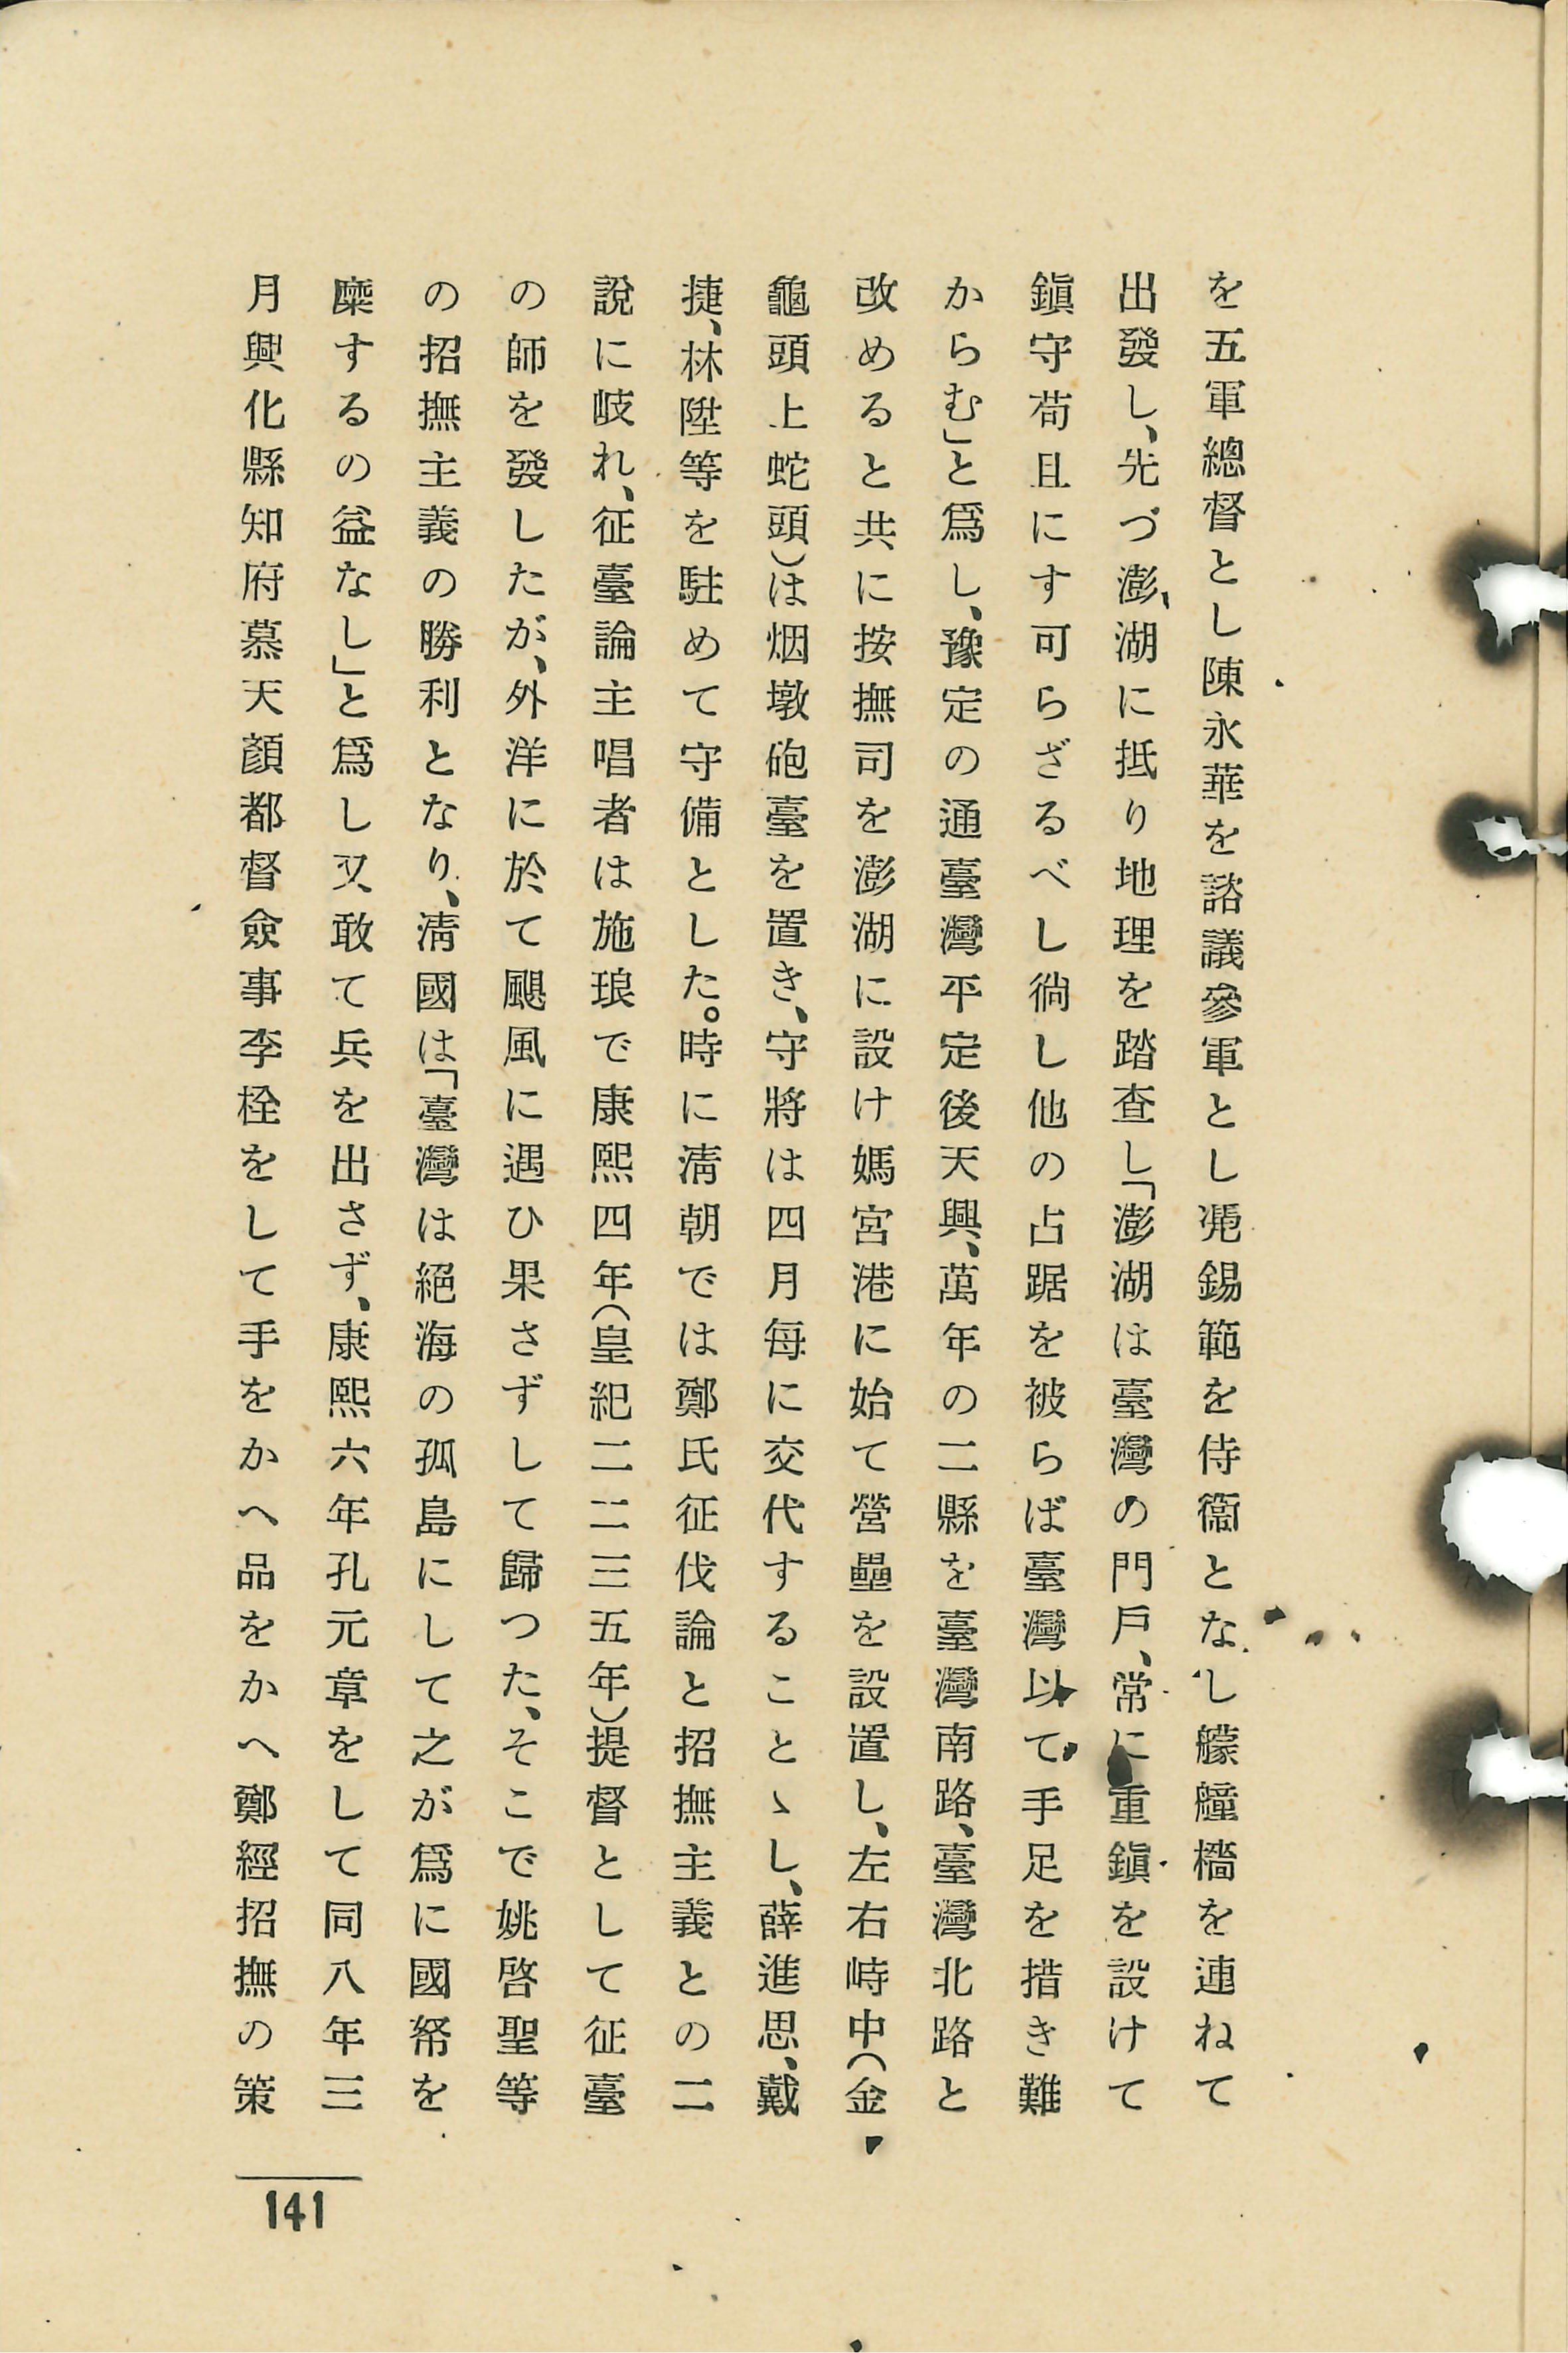 を五軍總督とし陳永華を諮議參軍とし洈錫範を侍衞となし艨艟檣を連ねて
出發し、先づ澎湖に抵り地理を踏査し「澎湖は臺灣の門戶、常に重鎭を設けて
鎭守苟且にす可らざるべし徜し他の占踞を被らば臺灣以て手足を措き難
からむ」と爲し、豫定の通臺灣平定後天興、萬年の二縣を臺灣南路、臺灣北路と
改めると共に按撫司を澎湖に設け媽宮港に始て營壘を設置し、左右峙中(金
龜頭上蛇頭)は烟墩砲臺を置き、守將は四月每に交代することゝし、薛進思、戴
捷、林陞等を駐めて守備とした。時に淸朝では鄭氏征伐論と招撫主義との二
說に岐れ、征臺論主唱者は施琅で康熙四年(皇紀二二三五年)提督として征臺
の師を發したが、外洋に於て颶風に遇ひ果さずして歸つた、そこで姚啓聖等
の招撫主義の勝利となり、淸國は「臺灣は絕海の孤島にして之が爲に國帑を
糜するの益なし」と爲し又敢て兵を出さず、康熙六年孔元章をして同八年三
月興化縣知府慕天顏都督僉事李栓をして手をかへ品をかへ鄭經招撫の策
141